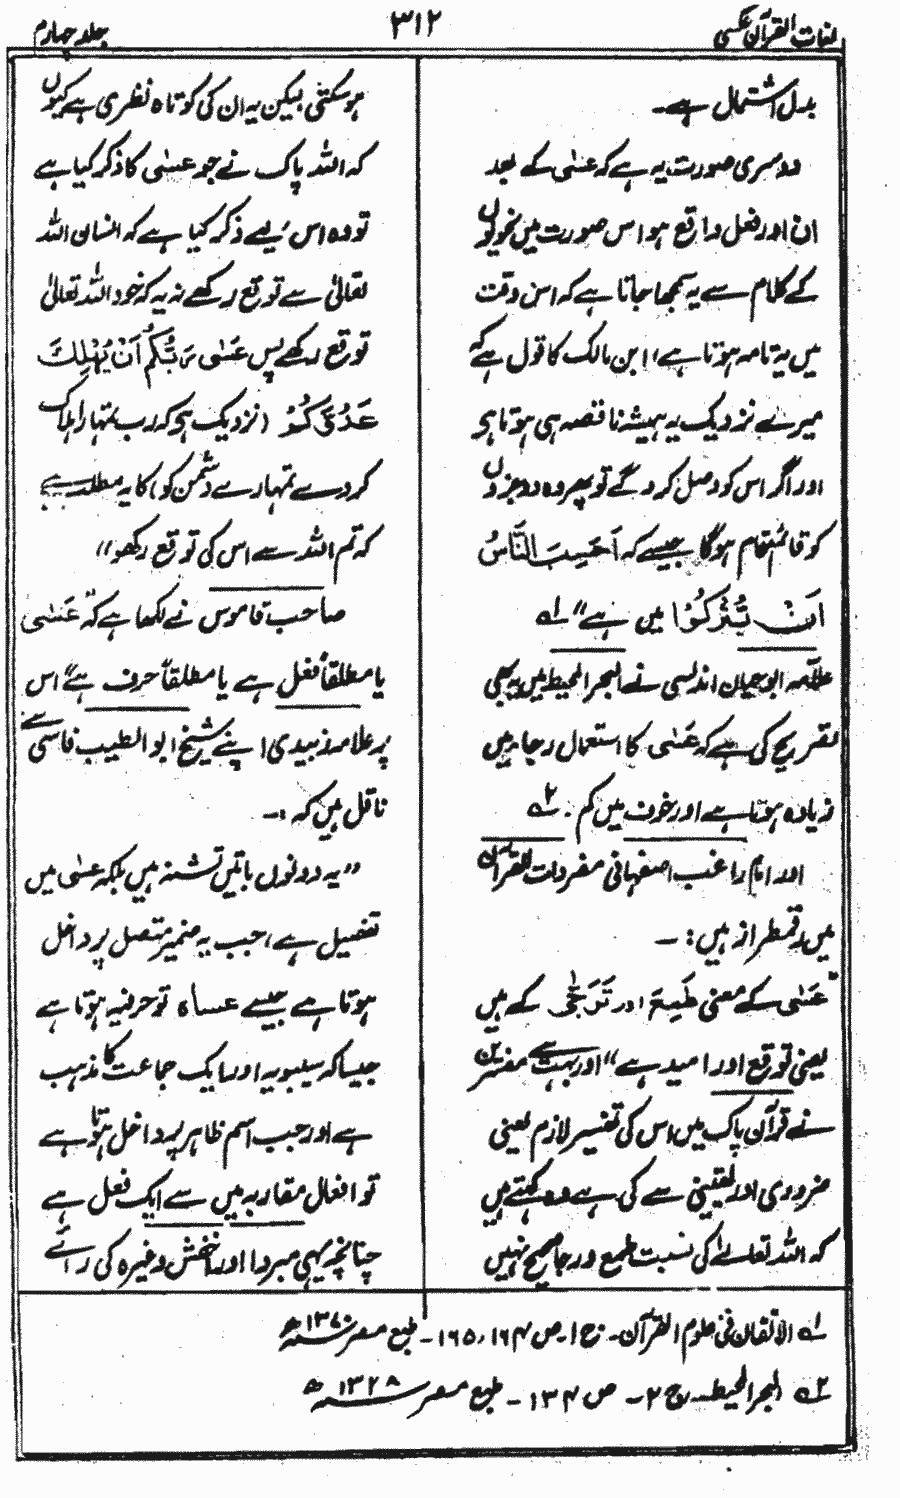 لغات القرآن عکسی
۳۱۲
جلد چہارم
بدل اشتمال ہے۔
دوسری صورت یہ ہے کہ عسٰی کے بعد
ان اور فعل واقع ہو اس صورت میں نحویوں
کے کلام سے یہ سمجھا جاتا ہے کہ اس وقت
میں یہ تامہ ہوتا ہے، ابن مالک کا قول ہے کہ
میرے نزدیک یہ ہمیشہ ناقصہ ہی ہوتا ہے
اور اگر اس کو وصل کر دگے تو پھر وہ دو جزوں
کو قائم مقام ہوگا جیسے کہ اَحَسِبَ النَّاسُ
اَنْ يُّتْرَكُوْا میں ہے" لہ
علامہ ابوحیان اندلسی نے البحر المحیط میں یہ بھی
تصریح کی ہے کہ عَسٰی کا استعمال رجاء میں
زیادہ ہوتا ہے اور خوف میں کم ۔ ۲ہ
اور امام راغب اصفہانی مفردات القرآن
میں رقمطراز ہیں :۔
"عَسٰی کے معنی طَمِعَ اور تَرَجّٰی کے ہیں
یعنی توقع اور امید ہے" اور بہت سے مفسرین
نے قرآن پاک میں اس کی تفسیر لازم یعنی
ضروری اور یقینی سے کی ہے وہ کہتے ہیں
کہ اللہ تعالےٰ کی نسبت طمع ورجا صحیح نہیں
ہوسکتی، لیکن یہ ان کی کوتاہ نظری ہے کیوں
کہ اللہ پاک نے جو عسٰی کا ذکر کیا ہے
تو وہ اس لیے ذکر کیا ہے کہ انسان اللہ
تعالیٰ سے توقع رکھے نہ یہ کہ خود اللہ تعالیٰ
توقع رکھے پس عَسٰی رَبُّكُمْ اَنْ يُّهْلِكَ
عَدُوَّكُمْ (نزدیک ہے کہ رب تمہارا ہلاک
کر دے تمہارے دشمن کو) کا یہ مطلب ہے
کہ تم اللہ سے اس کی توقع رکھو"
صاحب قاموس نے لکھا ہے کہ "عَسٰی
یا مطلقاً فعل ہے یا مطلقاً حرف ہے" اس
پر علامہ زبیدی اپنے شیخ ابو الطیب فاسی سے
ناقل ہیں کہ :۔
"یہ دونوں باتیں تشنہ ہیں بلکہ عسٰی میں
تفصیل ہے، جب یہ ضمیر متصل پر داخل
ہوتا ہے جیسے عساہ تو حرفیہ ہوتا ہے
جیسا کہ سیبویہ اور ایک جماعت کا مذہب
ہے اور جب اسم ظاہر پر داخل ہوتا ہے
تو افعال مقاربہ میں سے ایک فعل ہے
چنانچہ یہی مبرد اور اخفش وغیرہ کی رائے
لہ الاتقان فی علوم القرآن۔ ج ۱۔ ص ۱۶۴، ۱۶۵۔ طبع مصر ۱۳۷۰ھ
۲ہ البحر المحیط۔ ج ۲۔ ص ۱۳۴۔ طبع مصر ۱۳۲۸ھ